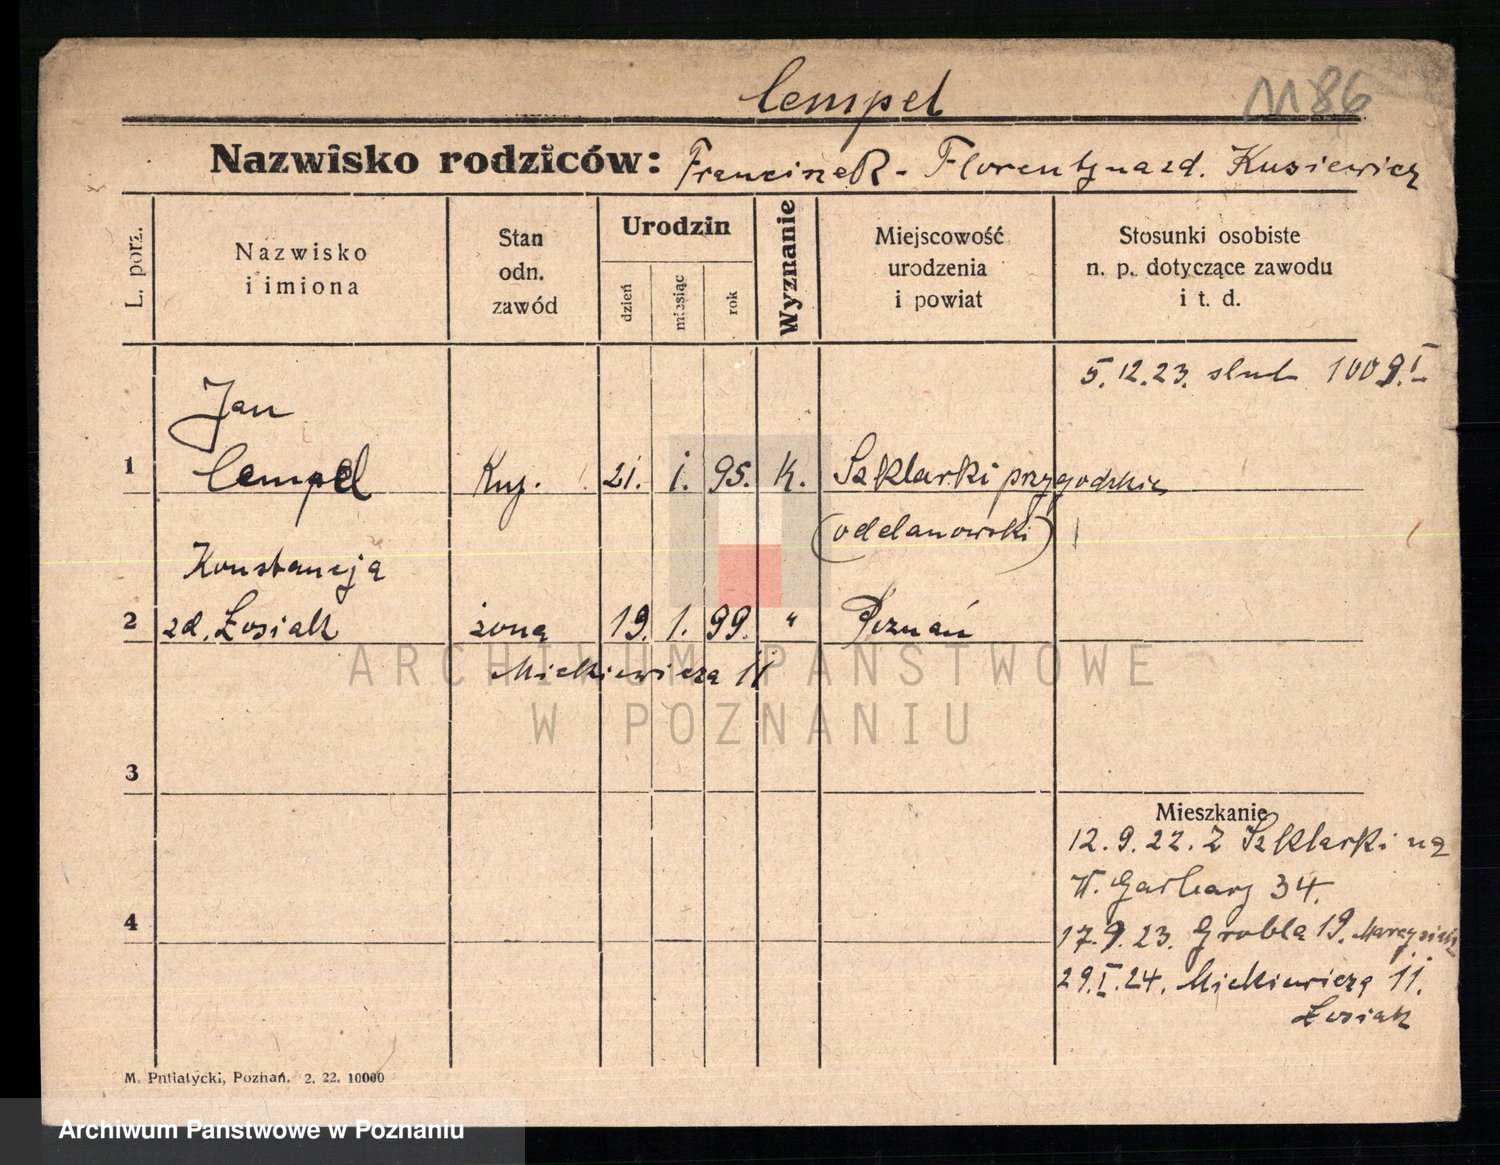 Cempel
1186
Nazwisko rodziców: Franciszek - Florentyna zd. Kusiewicz
L. porz.
Nazwisko
i imiona
Stan
odn.
zawód
Urodzin
dzień
miesiąc
rok
Wyznanie
Miejscowość
urodzenia
i powiat
Stosunki osobiste
n. p. dotyczące zawodu
i t. d.
5.12.23. slub 100 g. I
Jan
1 Cempel Kup. 21. 1. 95. K. Szklarki przygodzkie
(odolanowski)
Konstancja
2 zd. Łosiak żona 19. 1. 99. " Poznań
Mickiewicza 11
3
Mieszkanie
12.9.22. Z Szklarki na
W. Garbary 34.
4
17.9.23. Grobla 19.
29.I.24. Mickiewicza 11.
Łosiak
M. Putiatycki, Poznań. 2. 22. 10000
ARCHIWUM PAŃSTWOWE
W POZNANIU
Archiwum Państwowe w Poznaniu